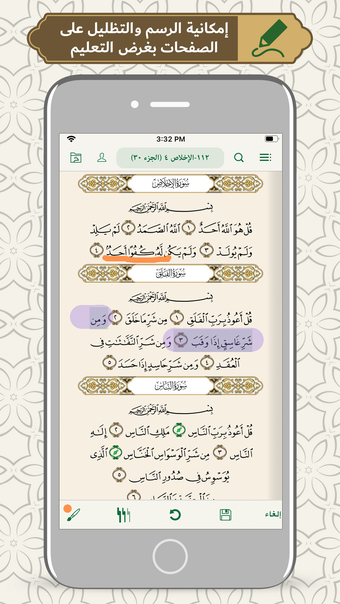 إمكانية الرسم والتظليل على
الصفحات بغرض التعليم
3:32 PM
١١٢-الإخلاص ٤ (الجزء ٣٠)
سُورَةُ الإِخْلَاصِ
بِسْمِ اللَّهِ الرَّحْمَٰنِ الرَّحِيمِ
قُلْ هُوَ اللَّهُ أَحَدٌ ١ اللَّهُ الصَّمَدُ ٢ لَمْ يَلِدْ
وَلَمْ يُولَدْ ٣ وَلَمْ يَكُن لَّهُ كُفُوًا أَحَدٌ ٤
سُورَةُ الفَلَقِ
بِسْمِ اللَّهِ الرَّحْمَٰنِ الرَّحِيمِ
قُلْ أَعُوذُ بِرَبِّ الْفَلَقِ ١ مِن شَرِّ مَا خَلَقَ ٢ وَمِن
شَرِّ غَاسِقٍ إِذَا وَقَبَ ٣ وَمِن شَرِّ النَّفَّاثَاتِ فِي
الْعُقَدِ ٤ وَمِن شَرِّ حَاسِدٍ إِذَا حَسَدَ ٥
سُورَةُ النَّاسِ
بِسْمِ اللَّهِ الرَّحْمَٰنِ الرَّحِيمِ
قُلْ أَعُوذُ بِرَبِّ النَّاسِ مَلِكِ النَّاسِ ٢ إِلَٰهِ
النَّاسِ ٣ مِن شَرِّ الْوَسْوَاسِ الْخَنَّاسِ الَّذِي
يُوَسْوِسُ فِي صُدُورِ النَّاسِ ٥
إلغاء